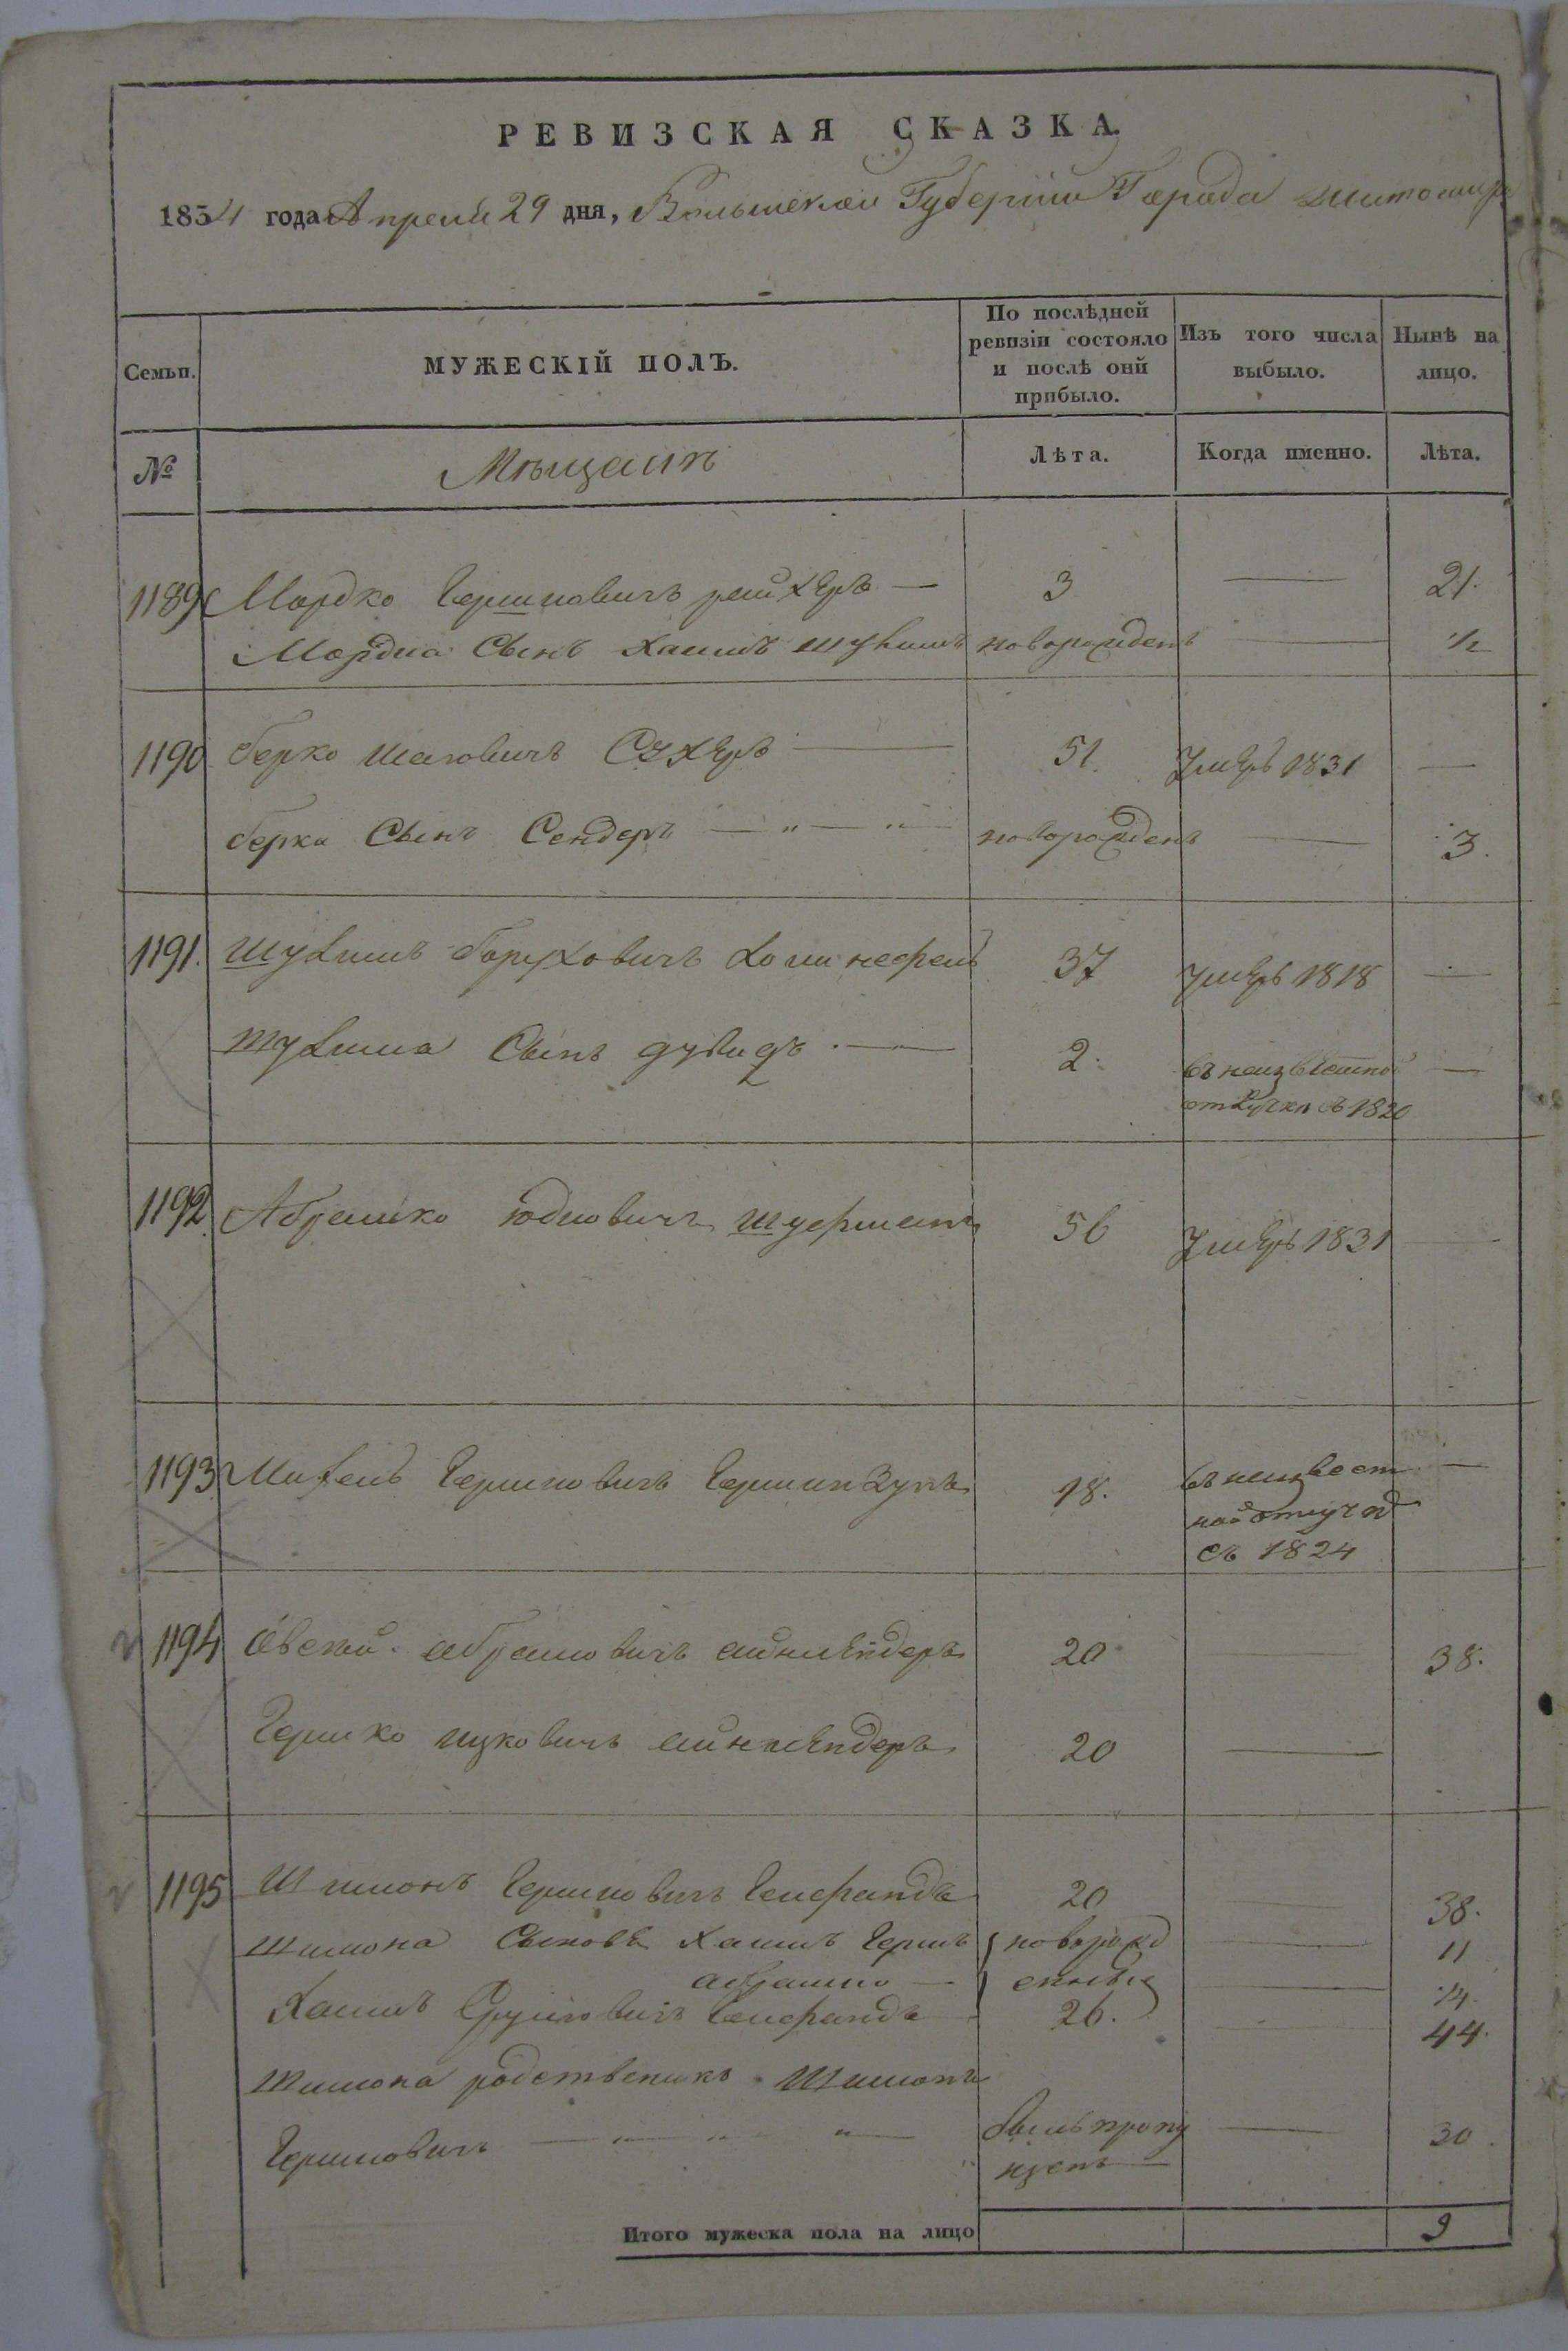 РЕВИЗСКАЯ СКАЗКА.
1834 года Апреля 29 дня, Волынской Губернии Города Житомира
Семьи.
МУЖЕСКІЙ ПОЛЪ.
По послѣдней ревизіи состояло и послѣ оній прибыло.
Изъ того числа выбыло.
Нынѣ на лицо.
№
Мѣщанъ
Лѣта.
Когда именно.
Лѣта.
1189 Мордко Гершковичъ — 3 — 21.
Мордка Сынъ Хаимъ новорожденъ — 1/2
1190 берко 51. умеръ 1831 —
берка Сынъ Сендеръ — " — " новорожденъ — 3.
1191. боруховичъ 37 умеръ 1818 —
Сынъ дувидъ — 2. въ неизвестной —
отлучки съ 1820
1192. Абрамко юдковичъ 56 умеръ 1831 —
1193 Михель Гершковичъ 18. въ неизвест —
ной отлучкѣ
съ 1824
1194 Овсей абрамовичъ 20 — 38.
Гершко ицковичъ 20 —
1195 Шимонъ Гершковичъ 20 — 38.
Шимона Сыновя Хаимъ Гершъ новорожд — 11
абрамко — енныя — 14.
Хаимъ 26. — 44.
Шимона родственикъ Шимонъ
Гершковичъ — " " " — былъ пропу — 30.
щенъ —
Итого мужеска пола на лицо 9